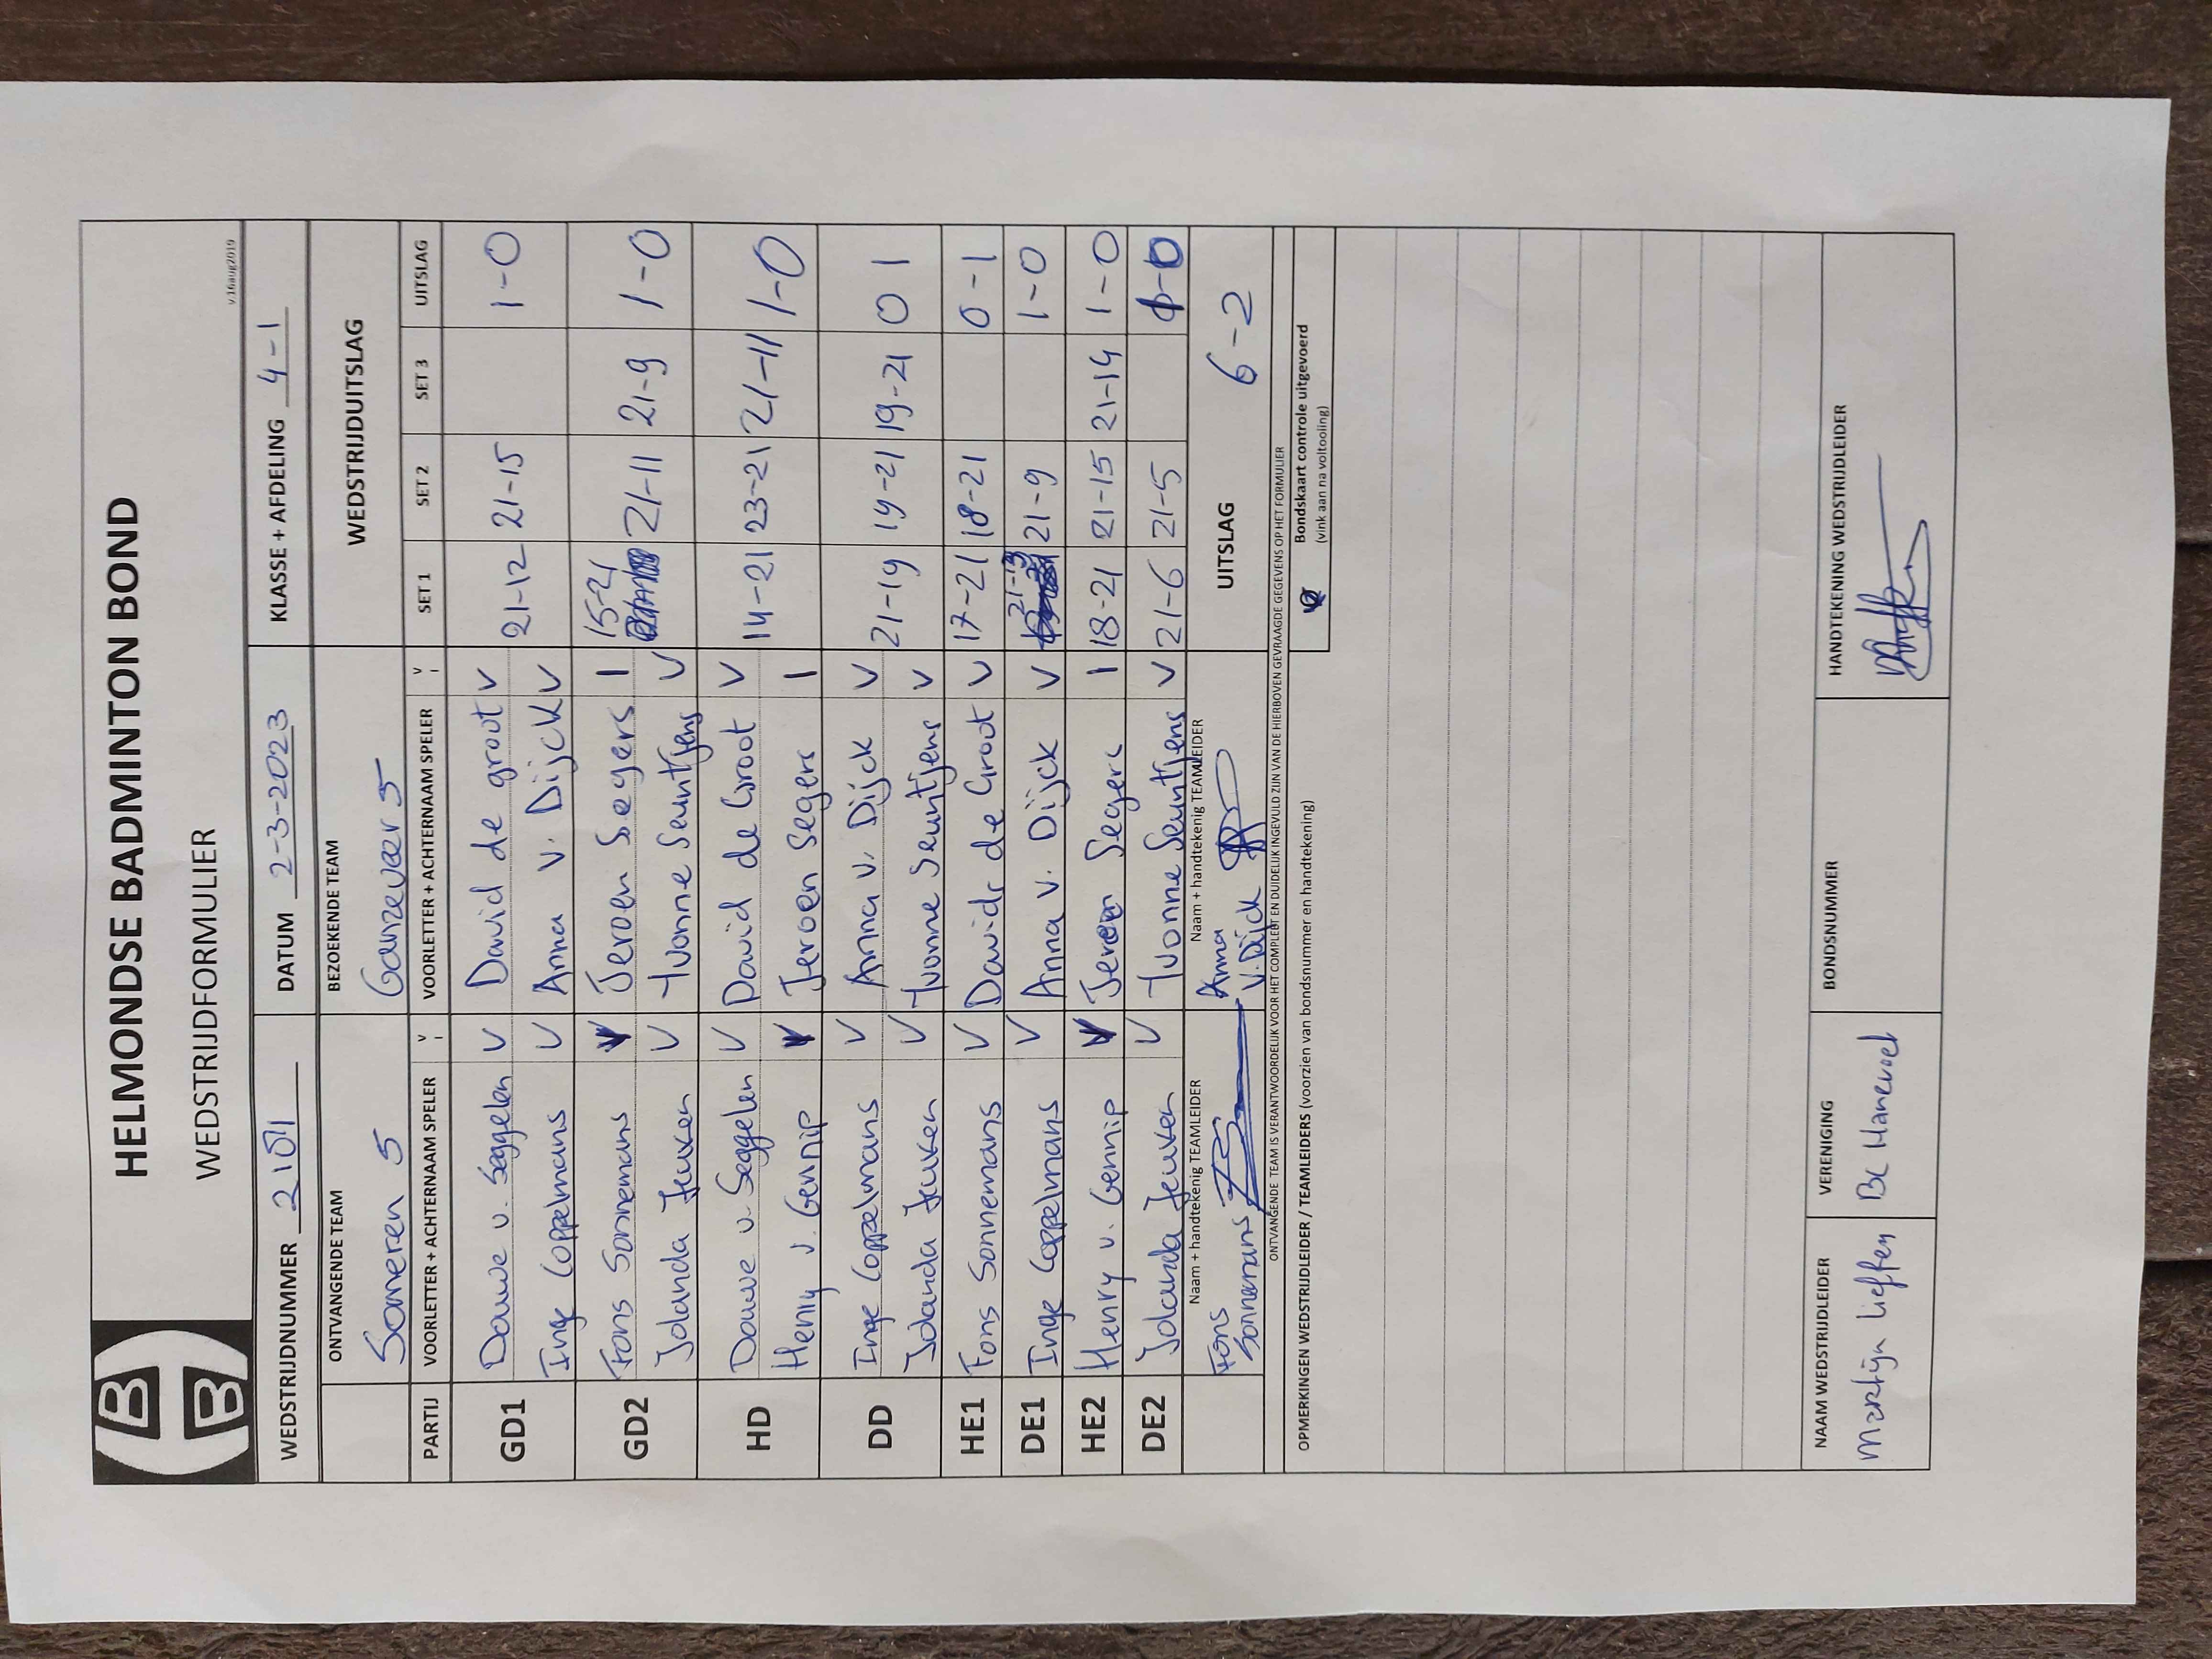 HELMONDSE BADMINTON BOND
WEDSTRIJDFORMULIER
v.16aug2019
WEDSTRIJDNUMMER 2101 DATUM 2-3-2023 KLASSE + AFDELING 4-1
ONTVANGENDE TEAM BEZOEKENDE TEAM WEDSTRIJDUITSLAG
Someren 5 Ganzeveer 5
PARTIJ VOORLETTER + ACHTERNAAM SPELER V I VOORLETTER + ACHTERNAAM SPELER V I SET 1 SET 2 SET 3 UITSLAG
GD1 Douwe v. Seggelen V David de groot V 21-12 21-15 1-0
Inge Coppelmans V Anna v. Dijck V
GD2 Fons Sonnemans V Jeroen Segers I 15-21 21-11 21-9 1-0
Jolanda Jeuken V Yvonne Seuntjens V
HD Douwe v. Seggelen V David de Groot V 14-21 23-21 21-11 1-0
Henry v. Gennip V Jeroen Segers I
DD Inge Coppelmans V Anna v. Dijck V 21-19 19-21 19-21 0 1
Jolanda Jeuken V Yvonne Seuntjens V
HE1 Fons Sonnemans V David de Groot V 17-21 18-21 0-1
DE1 Inge Coppelmans V Anna v. Dijck V 21-13 21-9 1-0
HE2 Henry v. Gennip V Jeroen Segers I 18-21 21-15 21-14 1-0
DE2 Jolanda Jeuken V Yvonne Seuntjens V 21-6 21-5 1-0
Naam + handtekenig TEAMLEIDER Naam + handtekenig TEAMLEIDER UITSLAG 6-2
Fons Sonnemans Anna v. Dijck
ONTVANGENDE TEAM IS VERANTWOORDELIJK VOOR HET COMPLEET EN DUIDELIJK INGEVULD ZIJN VAN DE HIERBOVEN GEVRAAGDE GEGEVENS OP HET FORMULIER
OPMERKINGEN WEDSTRIJDLEIDER / TEAMLEIDERS (voorzien van bondsnummer en handtekening) Bondskaart controle uitgevoerd
(vink aan na voltooiing)
NAAM WEDSTRIJDLEIDER VERENIGING BONDSNUMMER HANDTEKENING WEDSTRIJDLEIDER
Martijn Lieffen BC Hanevoel